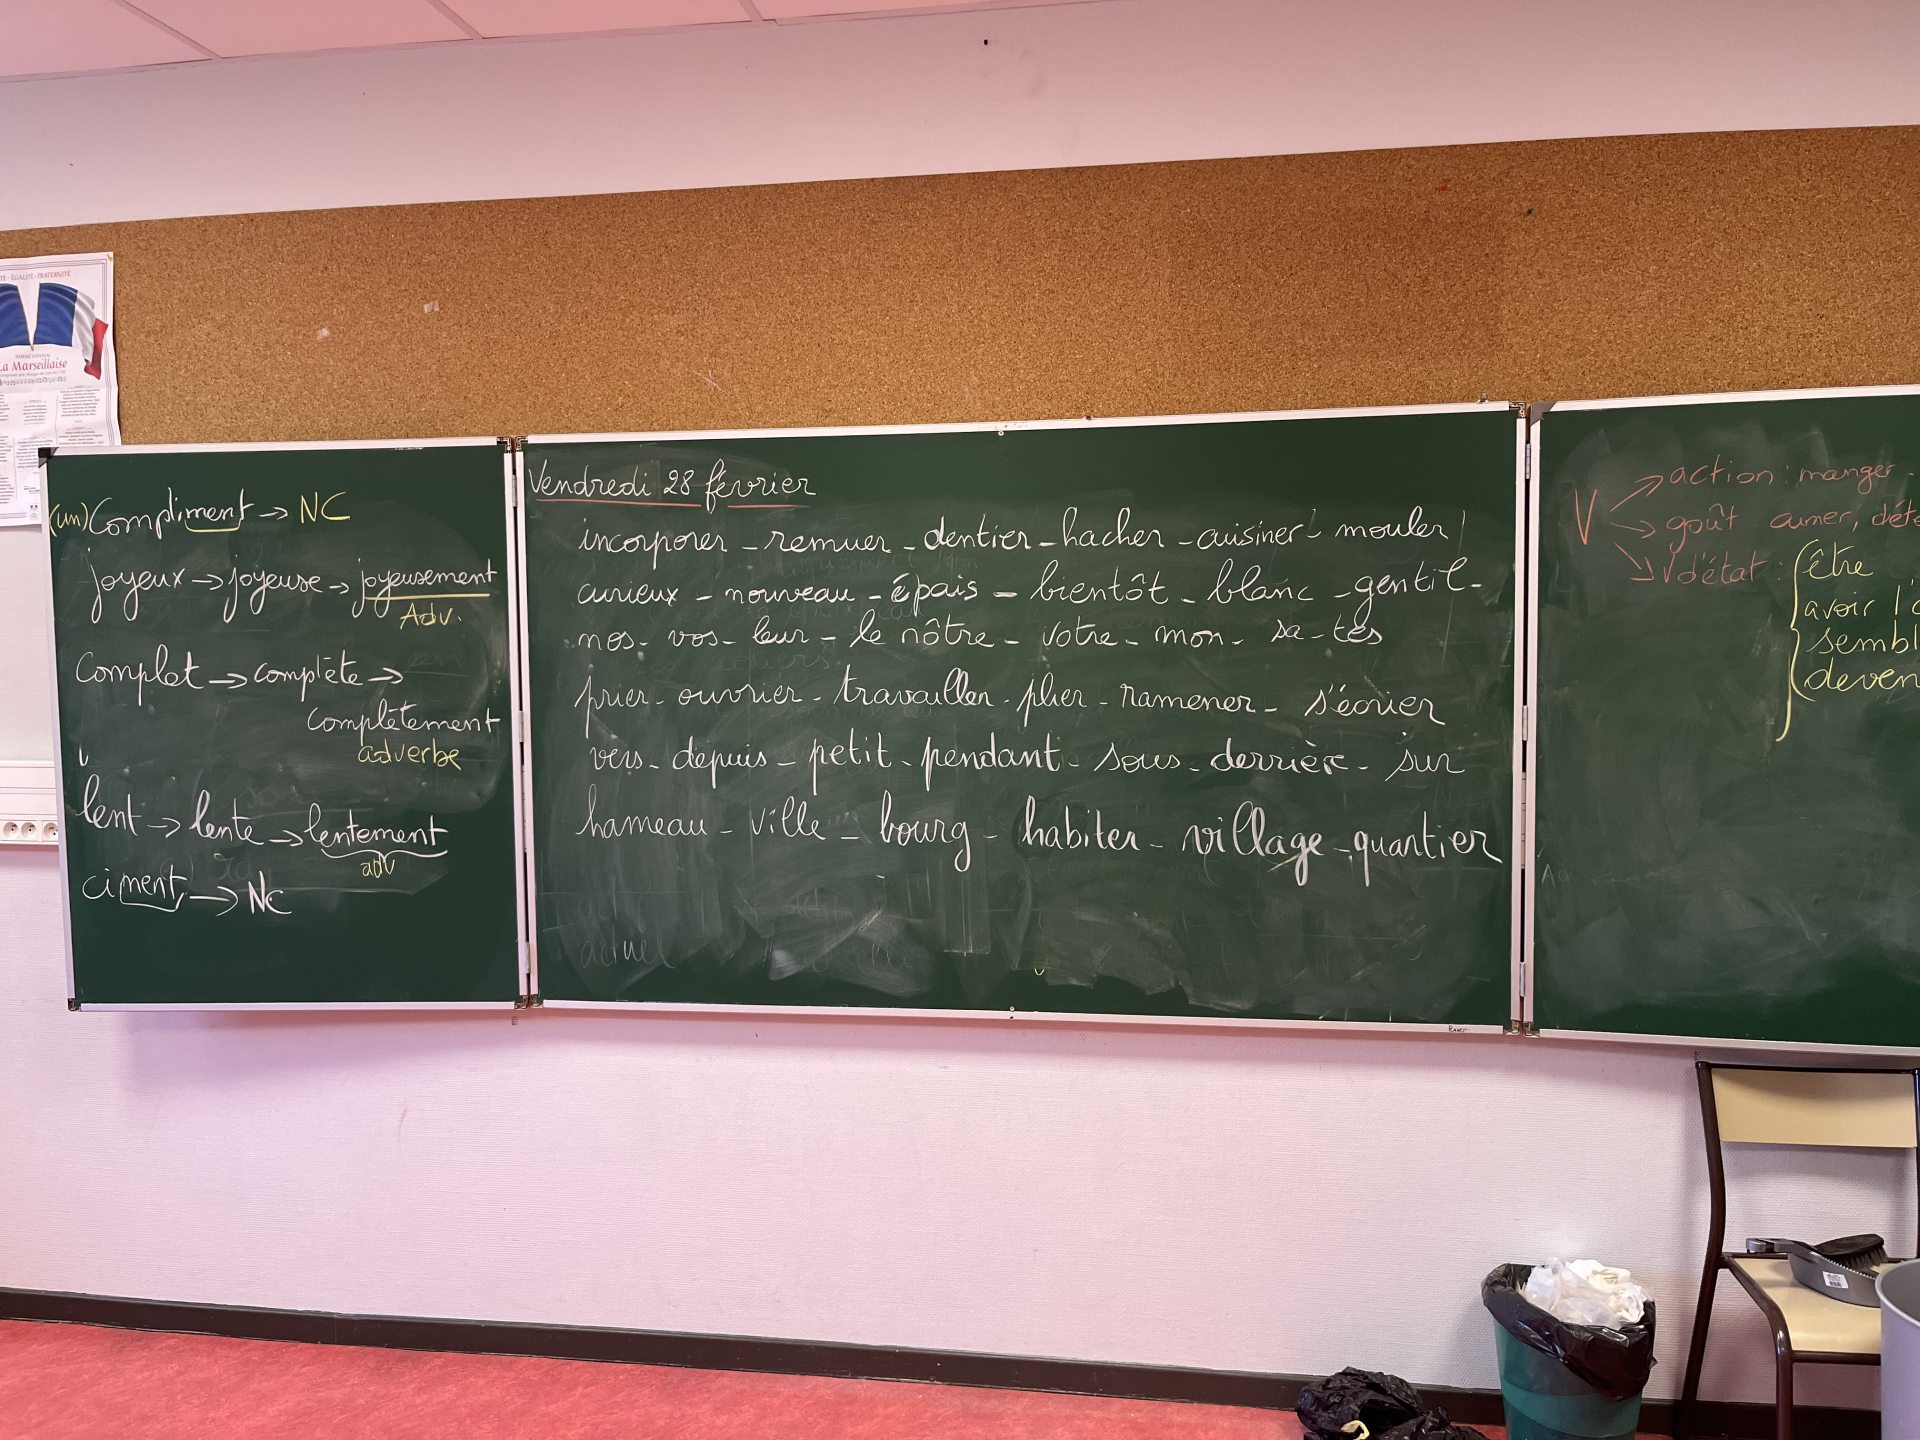 ÉGALITÉ - FRATERNITÉ
La Marseillaise
(un) Compliment → NC
joyeux → joyeuse → joyeusement
Adv.
Complet → complète →
complètement
adverbe
lent → lente → lentement
adv
ciment → NC
Vendredi 28 février
incorporer - remuer - dentier - hacher - cuisiner - mouler
curieux - nouveau - épais - bientôt - blanc - gentil -
nos - vos - leur - le nôtre - votre - mon - sa - tes
prier - ouvrier - travailler - plier - ramener - s'écrier
vers - depuis - petit - pendant - sous - derrière - sur
hameau - ville - bourg - habiter - village - quartier
actuel
V → action : manger
→ goût aimer, déte
→ V d'état : être
avoir l'a
sembl
deven